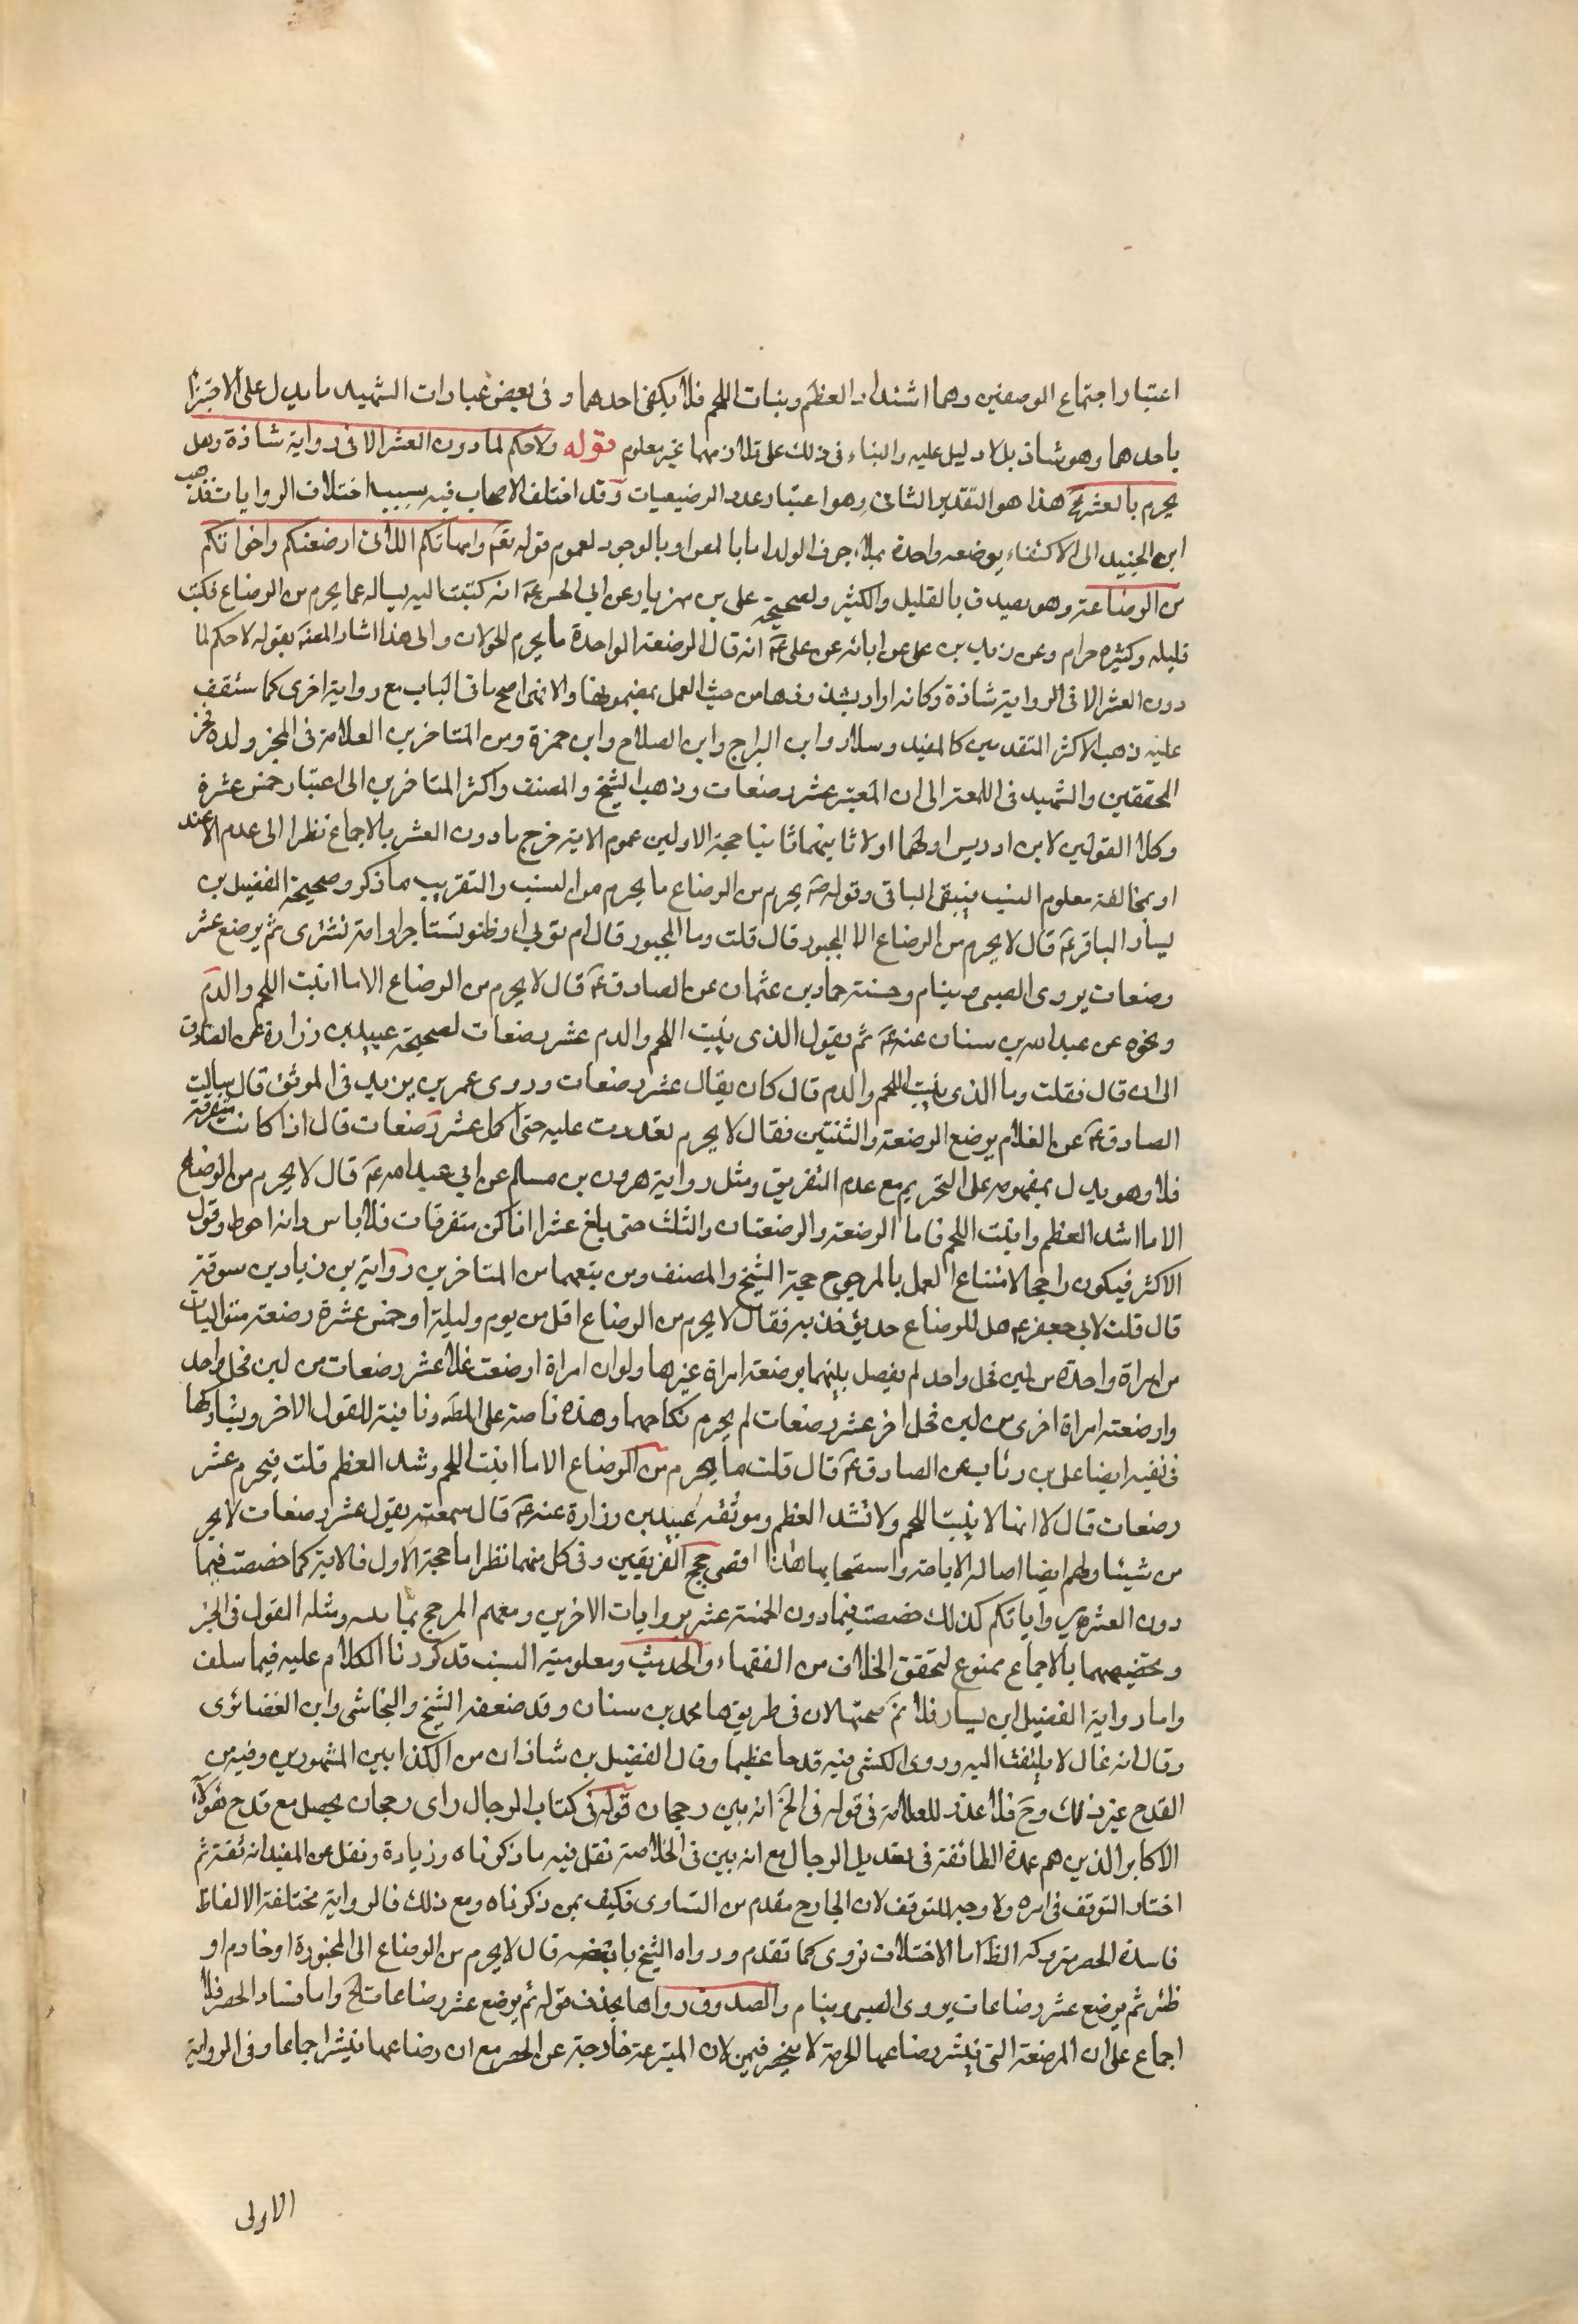 اعتبار اجتماع الوصفين وهما اشتداد العظم ونبات اللحم فلا يكفى احدهما وفى بعض عبارات الشهيد ما يدل على الاجتزاء
باحدهما وهو شاذ بل لا دليل عليه والبناء فى ذلك على تلازمهما غير معلوم قوله ولا حكم لما دون العشر الا فى رواية شاذة وهل
يحرم بالعشر هذا هو التقدير الثانى وهو اعتبار عدد الرضعيات وقد اختلف الاصحاب فيه بسبب اختلاف الروايات فذهب
ابن الجنيد الى الاكتفاء بوضعه واحدة بملاء جوف الولد اما بالمص او بالوجور لعموم قوله تعم وامهاتكم اللاتى ارضعنكم واخواتكم
من الرضاعة وهو يصدق بالقليل والكثير ولصحيحة على بن مهزيار عن ابى الحسن عم انه كتبت اليه يساله عما يحرم من الرضاع فكتب
قليله وكثيره حرام وعن زيد بن على عن ابائه عن على عم انه قال الرضعة الواحدة ما يحرم للحولان والى هذا اشار المصنف بقوله لا حكم لما
دون العشر الا فى الرواية شاذة وكانه اراد بشذوذها من حيث العمل بمضمونها والا فهى اصح ما فى الباب مع رواية اخرى كما ستقف
عليه ذهب الاكثر المتقدمين كالمفيد وسلار وابن البراج وابن الصلاح وابن حمزة ومن المتاخرين العلامة فى المخ وولده فخر
المحققين والشهيد فى اللمعة الى ان المعتبر عشر رضعات وذهب الشيخ والمصنف واكثر المتاخرين الى اعتبار خمس عشرة
وكلا القولين لابن ادريس اولهما اولا ثانيهما ثانيا حجة الاولين عموم الاية خرج ما دون العشر بالاجماع نظرا الى عدم الاعتد
او بمخالفة معلوم النسب فيبقى الباقى وقوله ص يحرم من الرضاع ما يحرم من النسب والتقريب ما ذكر وصحيحة الفضيل بن
يسار الباقر عم قال لا يحرم من الرضاع الا المجبور قال قلت وما المجبور قال ام تولى او ظئر تستاجر او امة تشترى ثم يرضع عشر
رضعات يروى الصبى وينام وحسنة حماد بن عثمان عن الصادق عم قال لا يحرم من الرضاع الا ما انبت اللحم والدم
ونحوه عن عبد الله بن سنان عنه عم ثم يقول الذى ينبت اللحم والدم عشر رضعات لصحيحة عبيد بن زرارة عن الصادق
الى ان قال فقلت وما الذى ينبت اللحم والدم قال كان يقال عشر رضعات وروى عمر بن يزيد فى الموثق قال سالت
الصادق عم عن الغلام يرضع الرضعة والثنتين فقال لا يحرم فعددت عليه حتى اكمل عشر رضعات قال اذا كانت متفرقة
فلا وهو يدل بمفهومه على التحريم مع عدم التفريق ومثل رواية هرون بن مسلم عن ابى عبد الله عم قال لا يحرم من الرضاع
الا ما اشد العظم وانبت اللحم فاما الرضعة والرضعتان والثلث حتى بلغ عشرا اذا كن متفرقات فلا باس وانه احوط وقول
الاكثر فيكون راجحا لامتناع العمل بالمرجوح حجة الشيخ والمصنف ومن تبعهما من المتاخرين رواية بن زياد بن سوقة
قال قلت لابى جعفر عم هل للرضاع حد يؤخذ به فقال لا يحرم من الرضاع اقل من يوم وليلة او خمس عشرة رضعة متواليات
من امراة واحدة من لبن فحل واحد لم يفصل بينهما برضعة امراة غيرها ولو ان امراة ارضعت غلاما عشر رضعات من لبن فحل واحد
وارضعته امراة اخرى من لبن فحل اخر عشر رضعات لم يحرم نكاحهما وهذه ناصة على المط ونافية للقول الاخر ويشاركها
فى نفيه ايضا على بن رئاب عن الصادق عم قال قلت ما يحرم من الرضاع الا ما انبت اللحم وشد العظم قلت فيحرم عشر
رضعات قال لا انها لا ينبت اللحم ولا تشد العظم وموثقة عبيد بن زرارة عنه عم قال سمعته يقول عشر رضعات لا يحر
من شيئا ولهم ايضا اصالة الاباحة واستصحابها هذا اقصى حجج الفريقين وفى كل منهما نظر اما حجة الاول فالاية كما خصصت فيما
دون العشر كذلك خصصت فيما دون الخمسة عشر بروايات الاخرين ومعهم المرجح ومثله القول فى الخبر
وتخصيصهما بالاجماع ممنوع لتحقق الخلاف من الفقهاء والحديث ومعلومية النسب قد كررنا الكلام عليه فيما سلف
واما رواية الفضيل ابن يسار فلا نم صحتها لان فى طريقها محمد بن سنان وقد ضعفه الشيخ والنجاشى وابن الغضائرى
وقال انه غال لا يلتفت اليه وروى الكشى فيه قدحا عظيما وقال الفضيل بن شاذان من الكذابين المشهورين وفيه من
القدح غير ذلك وح فلا عذر للعلامة فى قوله فى المخ انه بين رجحان قوله فى كتاب الرجال راى رجحان يحصل مع قدح هؤلاء
الاكابر الذين هم عمدة الطائفة فى تعديل الرجال مع انه بين فى الخلاصة نقل فيه ما ذكرناه وزيادة ونقل عن المفيد انه ثقة ثم
اختار التوقف فى امره ولا وجه للتوقف لان الجارح مقدم من التساوى فكيف بمن ذكرناه ومع ذلك فالرواية مختلفة الالفاظ
فاسدة الحصر متروكة الظ اما الاختلاف تروى كما تقدم ورواه الشيخ قال لا يحرم من الرضاع الى المجبورة او خادم او
ظئر ثم يرضع عشر رضاعات يروى الصبى وينام والصدوق رواها بحذف قوله ثم يرضع عشر رضاعات الخ واما فساد الحصر فلا
اجماع على ان المرضعة التى ينشر رضاعها للحرمة لا ينحصر فيمن لان المتبرعة خارجة عن الحصر مع ان رضاعها ينشر اجماعا وفى الرواية
الاولى